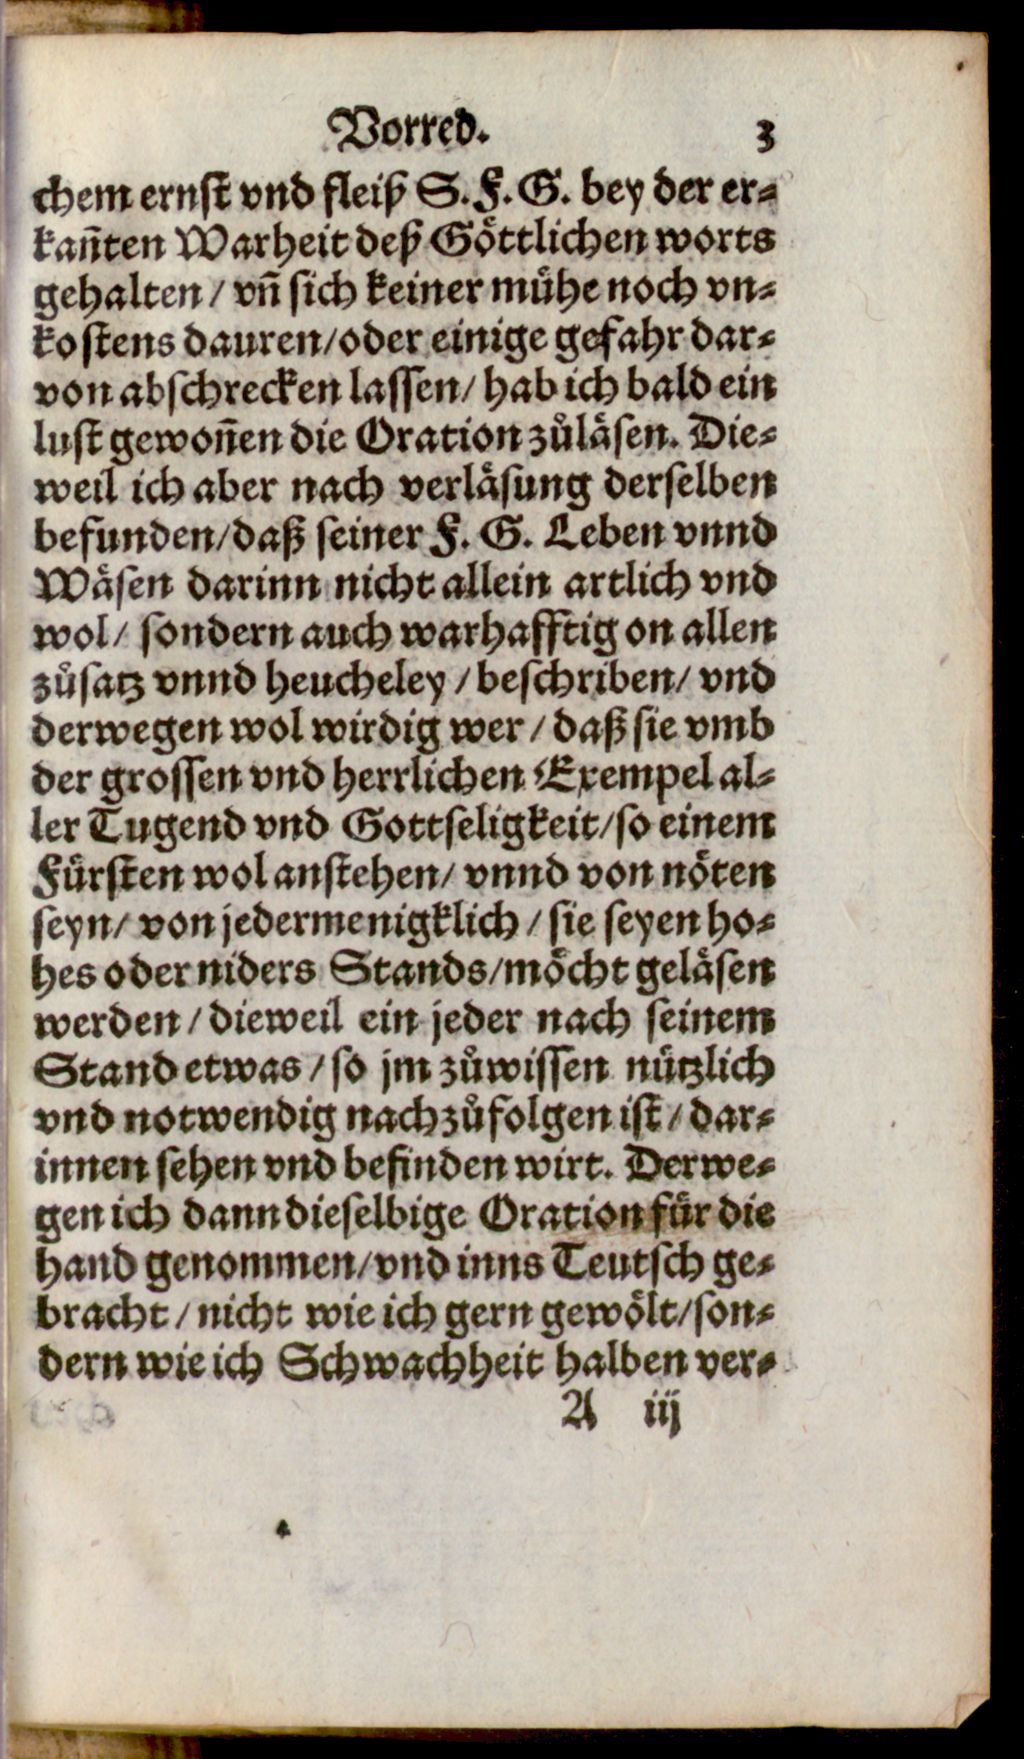 Vorred. 3
chem ernst vnd fleiß S. F. G. bey der er⸗
kañten Warheit deß Göttlichen worts
gehalten / vñ sich keiner mühe noch vn⸗
kostens dauren / oder einige gefahr dar⸗
von abschrecken lassen / hab ich bald ein
lust gewoñen die Oration zůläsen. Die⸗
weil ich aber nach verläsung derselben
befunden / daß seiner F. G. Leben vnnd
Wäsen darinn nicht allein artlich vnd
wol / sondern auch warhafftig on allen
zůsatz vnnd heucheley / beschriben / vnd
derwegen wol wirdig wer / daß sie vmb
der grossen vnd herrlichen Exempel al⸗
ler Tugend vnd Gottseligkeit / so einem
Fürsten wol anstehen / vnnd von nöten
seyn / von jedermenigklich / sie seyen ho⸗
hes oder niders Stands / möcht geläsen
werden / dieweil ein jeder nach seinem
Stand etwas / so jm zůwissen nützlich
vnd notwendig nachzůfolgen ist / dar⸗
innen sehen vnd befinden wirt. Derwe⸗
gen ich dann dieselbige Oration für die
hand genommen / vnd inns Teutsch ge⸗
bracht / nicht wie ich gern gewölt / son⸗
dern wie ich Schwachheit halben ver⸗
A iij